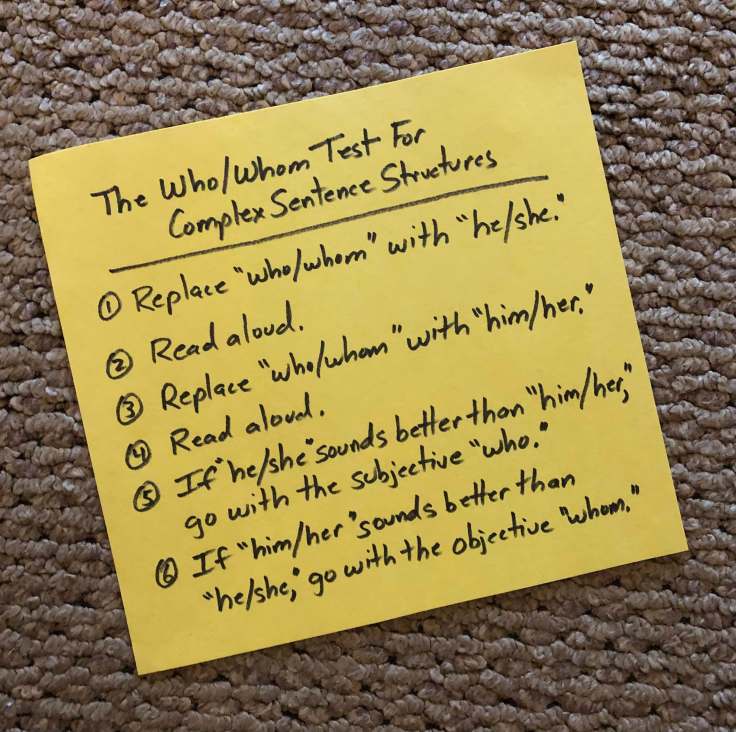 The Who/Whom Test For
Complex Sentence Structures
① Replace "who/whom" with "he/she."
② Read aloud.
③ Replace "who/whom" with "him/her."
④ Read aloud.
⑤ If "he/she" sounds better than "him/her,"
go with the subjective "who."
⑥ If "him/her" sounds better than
"he/she," go with the objective "whom."